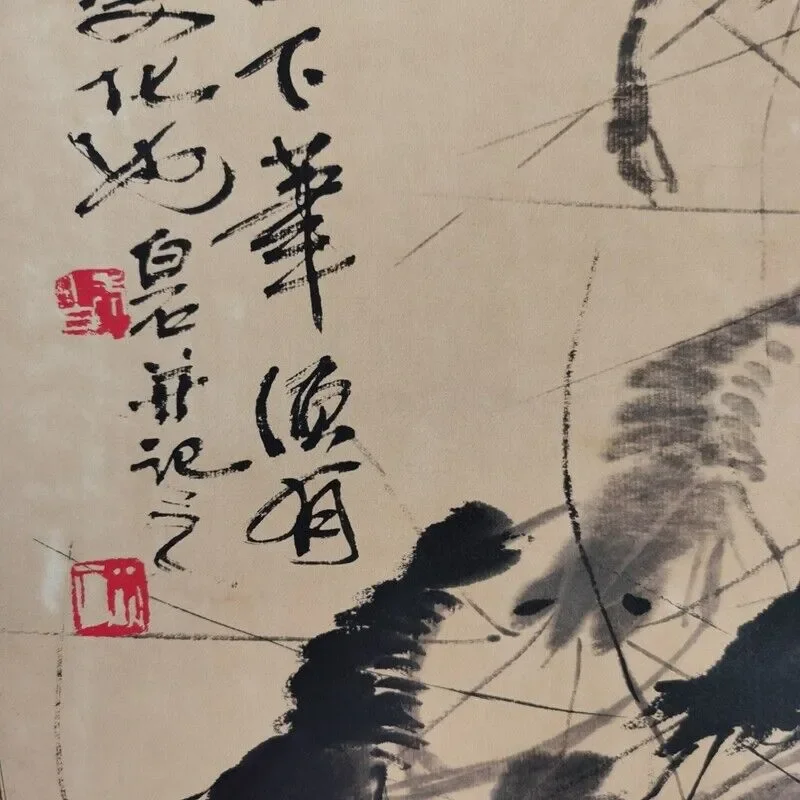 下筆須有
化也
白石并记之